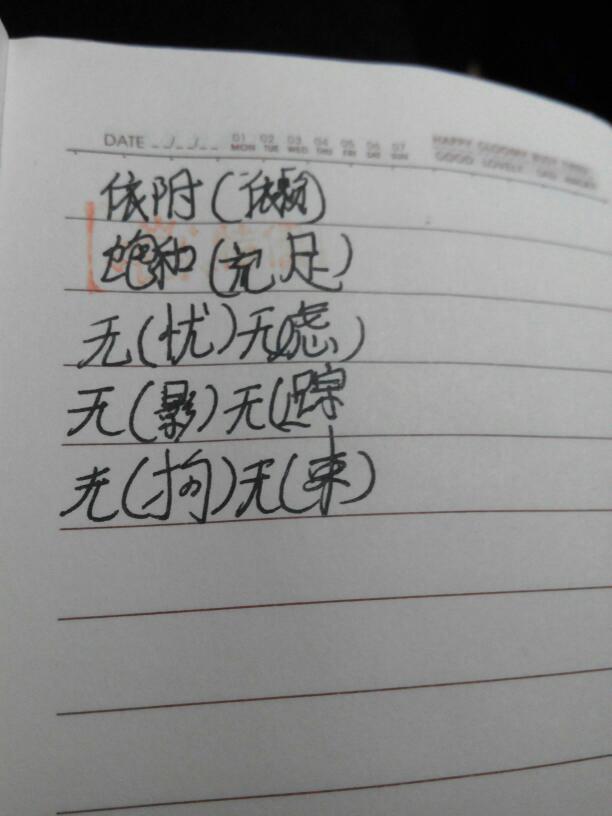 DATE
01 02 03 04 05 06 07
MON TUE WED THU FRI SAT SUN
依附(依赖)
饱和(充足)
无(忧)无(虑)
无(影)无(踪
无(拘)无(束)